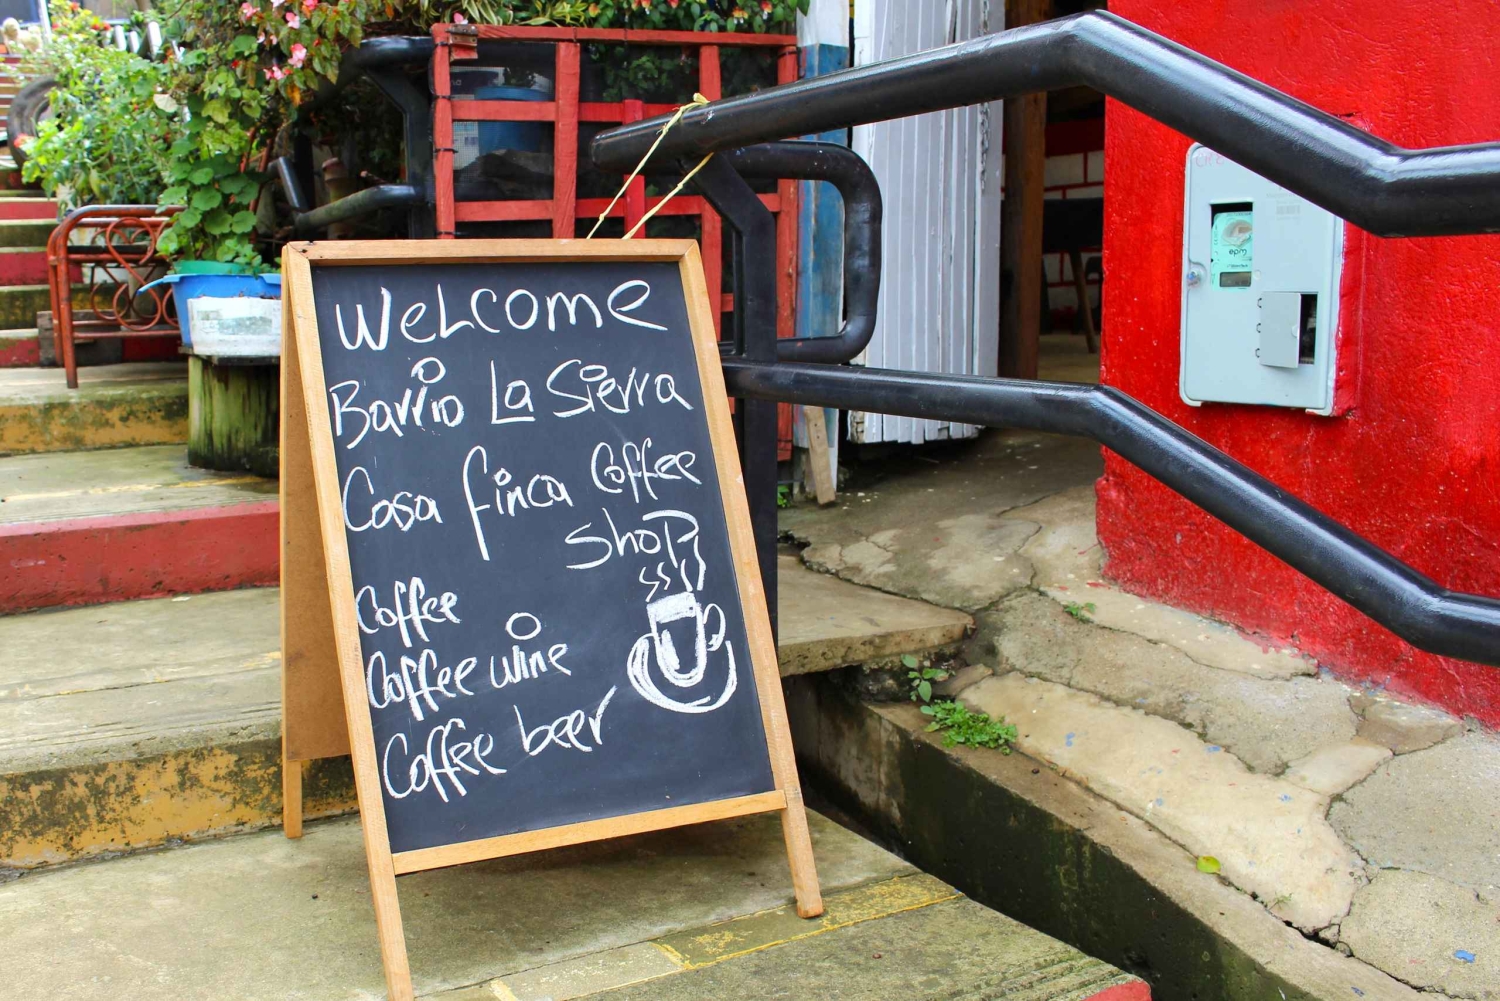 Welcome
Barrio La Sierra
Casa finca Coffee
Shop
Coffee
Coffee wine
Coffee beer
epm